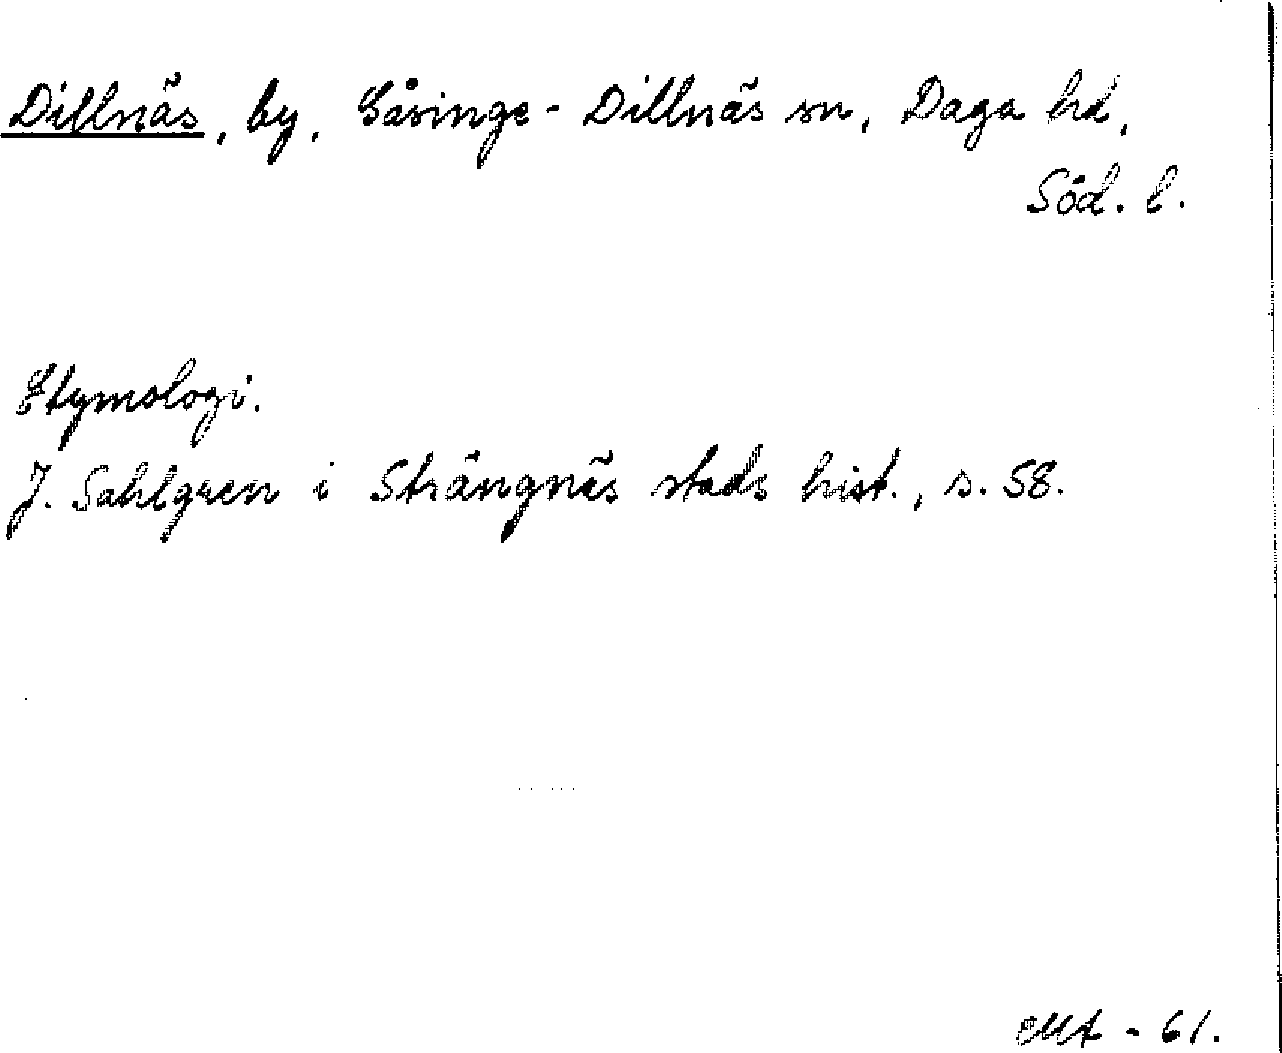 Dillnäs, by, Gåsinge-Dillnäs sn, Daga hd,
Söd. l.
Etymologi.
J. Sahlgren i Strängnäs stads hist., s. 58.
- 61.